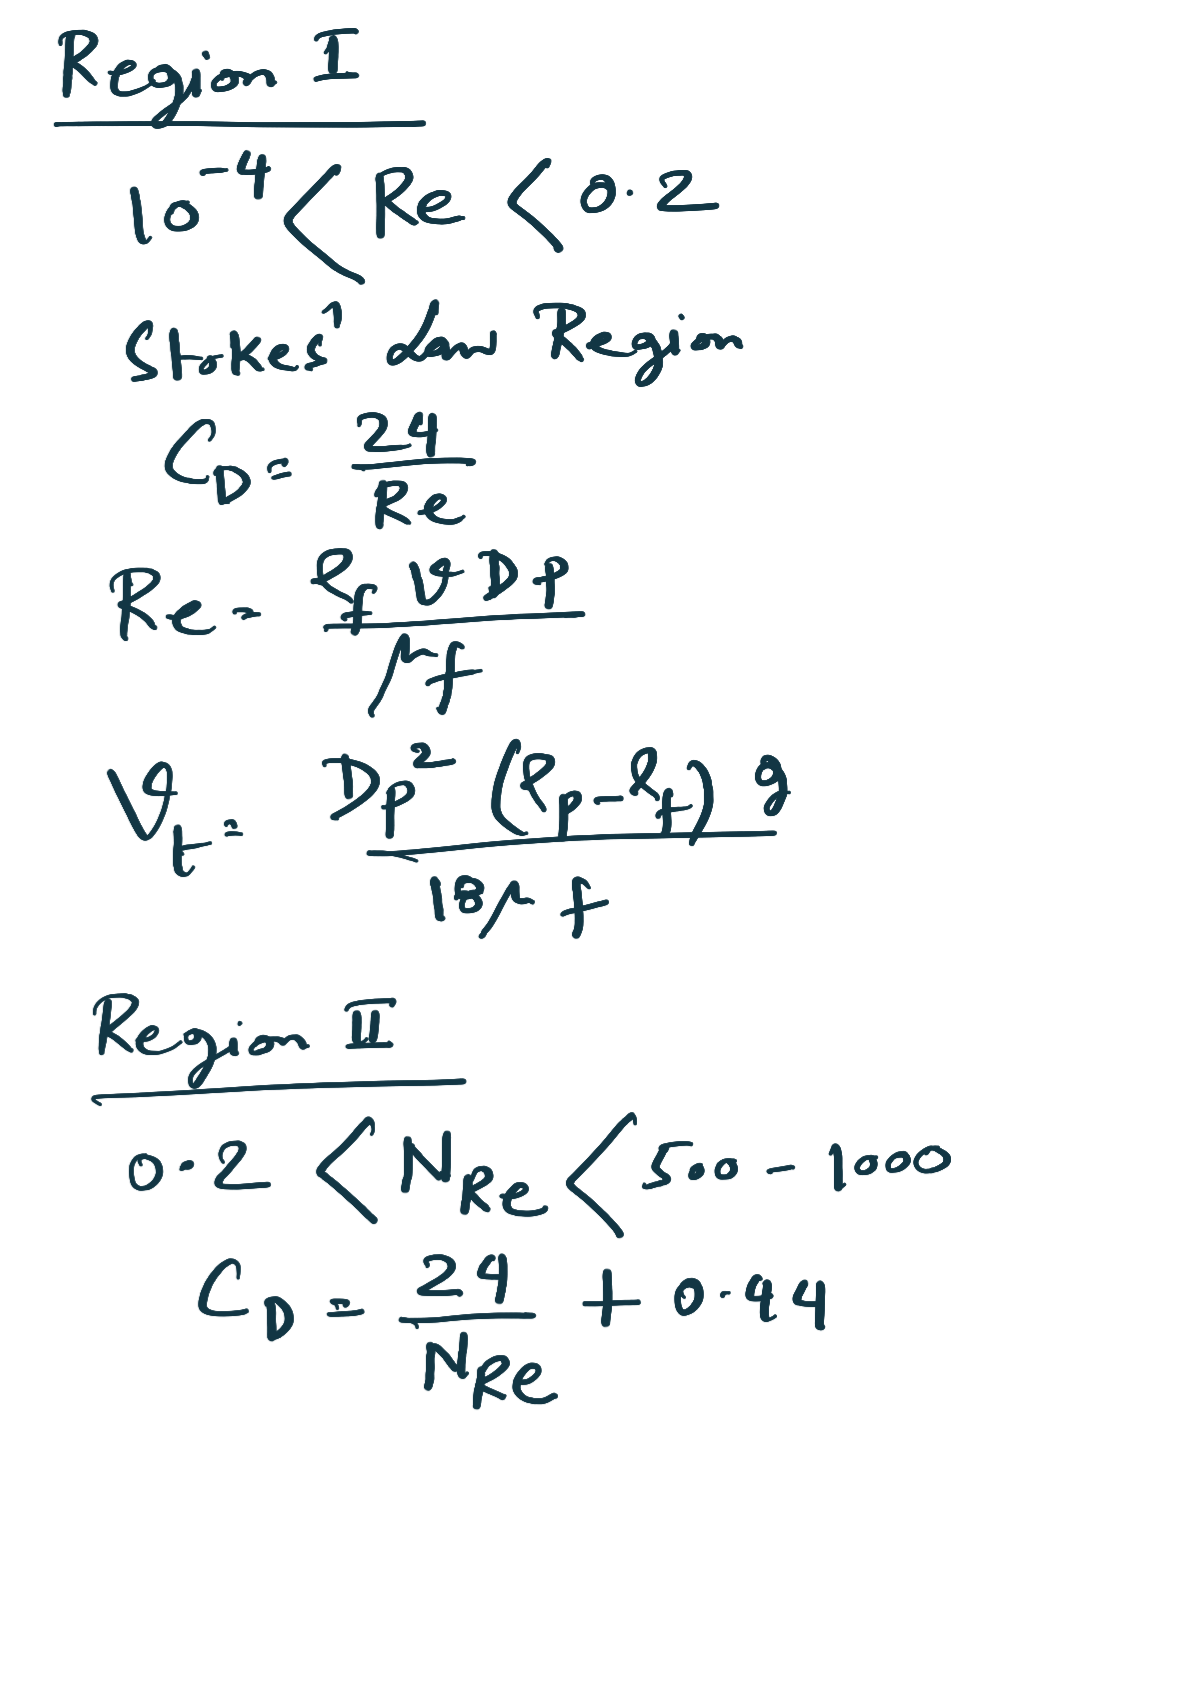 Region I
10⁻⁴ < Re < 0.2
Stokes' Law Region
C_D = 24/Re
Re = ρ_f v Dp / μf
V_t = Dp² (ρ_p - ρ_f) g / 18μf
Region II
0.2 < N_Re < 500 - 1000
C_D = 24/N_Re + 0.44